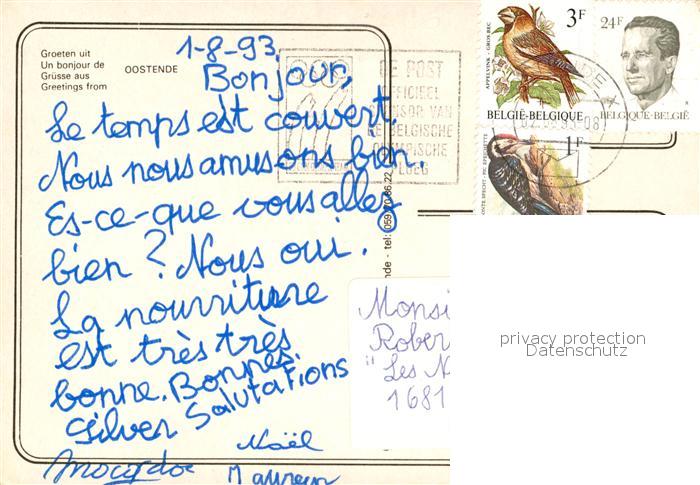 Groeten uit
Un bonjour de
Grüsse aus
Greetings from
OOSTENDE
1-8-93
Bonjour,
Le temps est couvert.
Nous nous amusons bien.
Es-ce-que vous allez
bien ? Nous oui.
La nourriture
est très très
bonne. Bonnes
Salutations
Gilver
Noël
DE POST
OFFICIEEL
VAN
BELGISCHE
3F
APPELVINK - GROS-BEC
BELGIË-BELGIQUE
24F
BELGIQUE-BELGIË
1F
tel: 059
Monsi
Rober
"Les N
1681
privacy protection
Datenschutz